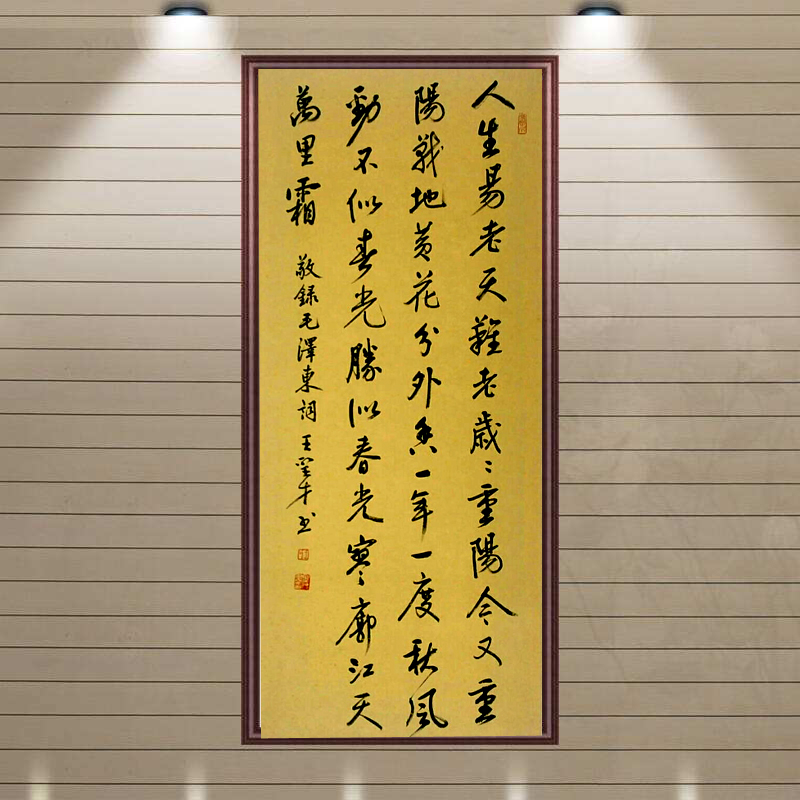 人生易老天難老歲〻重陽今又重
陽戰地黃花分外香一年一度秋風
勁不似春光勝似春光寥廓江天
萬里霜 敬録毛澤東詞 王才书